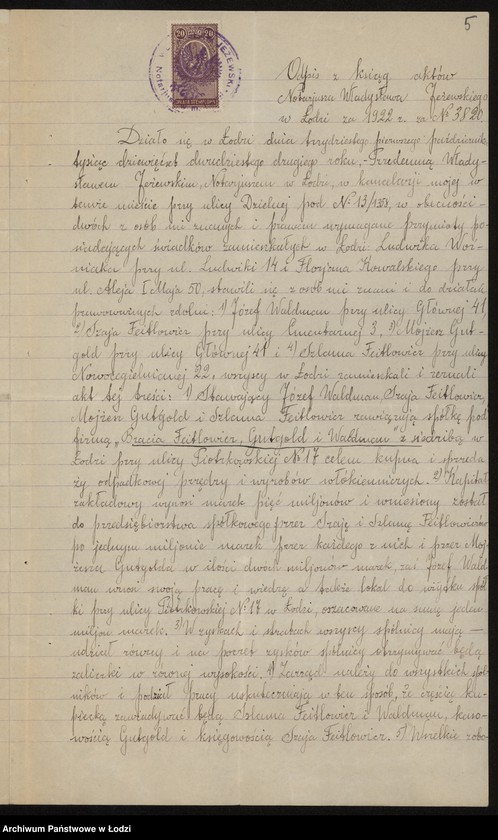 5
20 20
OPŁATA STEMPLOWA
JEŻEWSKI
Odpis z ksiąg aktów
Notarjusza Władysława Jeżewskiego
w Łodzi za 1922 r. za № 3820.
Działo się w Łodzi dnia trzydziestego pierwszego października
tysiąc dziewięćset dwudziestego drugiego roku, - Przedemną Włady-
sławem Jeżewskim, Notarjuszem w Łodzi, w kancelarji mojej w
temże mieście przy ulicy Dzielnej pod № 13/1358, w obecności -
dwóch z osób mi znanych i prawem wymagane przymioty po-
siadających świadków zamieszkałych w Łodzi: Ludwika Woź-
niaka przy ul. Ludwiki 14 i Florjana Kowalskiego przy
ul. Aleja I Maja 50, stawili się z osób mi znani i do działań
prawnych zdolni: 1) Józef Waldman przy ulicy Głównej 41,
2) Szaja Feitlowicz przy ulicy Cmentarnej 3, 3) Mojżesz Gut-
gold przy ulicy Głównej 41 i 4) Szlama Feitlowicz przy ulicy
Nowocegielnianej 22, wszyscy w Łodzi zamieszkali i zeznali
akt tej treści: 1) Stawający Józef Waldman, Szaja Feitlowicz,
Mojżesz Gutgold i Szlama Feitlowicz zawiązują spółkę pod
firmą „Bracia Feitlowicz, Gutgold i Waldman" z siedzibą w
Łodzi przy ulicy Piotrkowskiej № 17 celem kupna i sprzeda
ży odpadkowej przędzy i wyrobów włókienniczych. 2) Kapitał
zakładowy wynosi marek pięć miljonów i wniesiony został
do przedsiębiorstwa spółkowego przez Szaję i Szlamę Feitlowiczów
po jednym miljonie marek przez każdego z nich i przez Moj-
żesza Gutgolda w ilości dwóch miljonów marek, zaś Józef Wald
man wnosi swoją pracę i wiedzę a także lokal do użytku spół
ki przy ulicy Piotrkowskiej № 17 w Łodzi, oszacowane na sumę jeden
miljon marek. 3) W zyskach i stratach wszyscy spólnicy mają -
udział równy i na poczet zysków spólnicy otrzymywać będą
zaliczki w równej wysokości. 4) Zarząd należy do wszystkich spól-
ników i podział pracy uskuteczniają w ten sposób, że częścią ku-
piecką zawiadywać będą Szlama Feitlowicz i Waldman, kaso-
wością Gutgold i księgowością Szaja Feitlowicz. 5) Wszelkie zobo-
Archiwum Państwowe w Łodzi